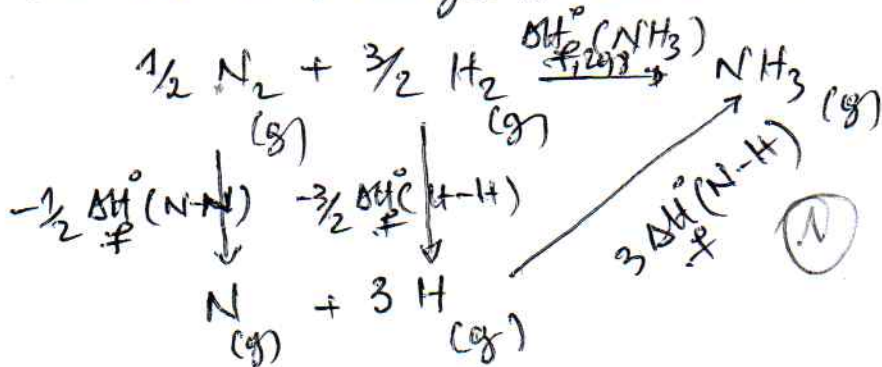 1/2 N2 + 3/2 H2 ΔH°f,298(NH3) NH3
(g) (g) (g)
-1/2 ΔH°f(N-N) -3/2 ΔH°f(H-H) 3 ΔH°f(N-H)
N + 3 H
(g) (g)